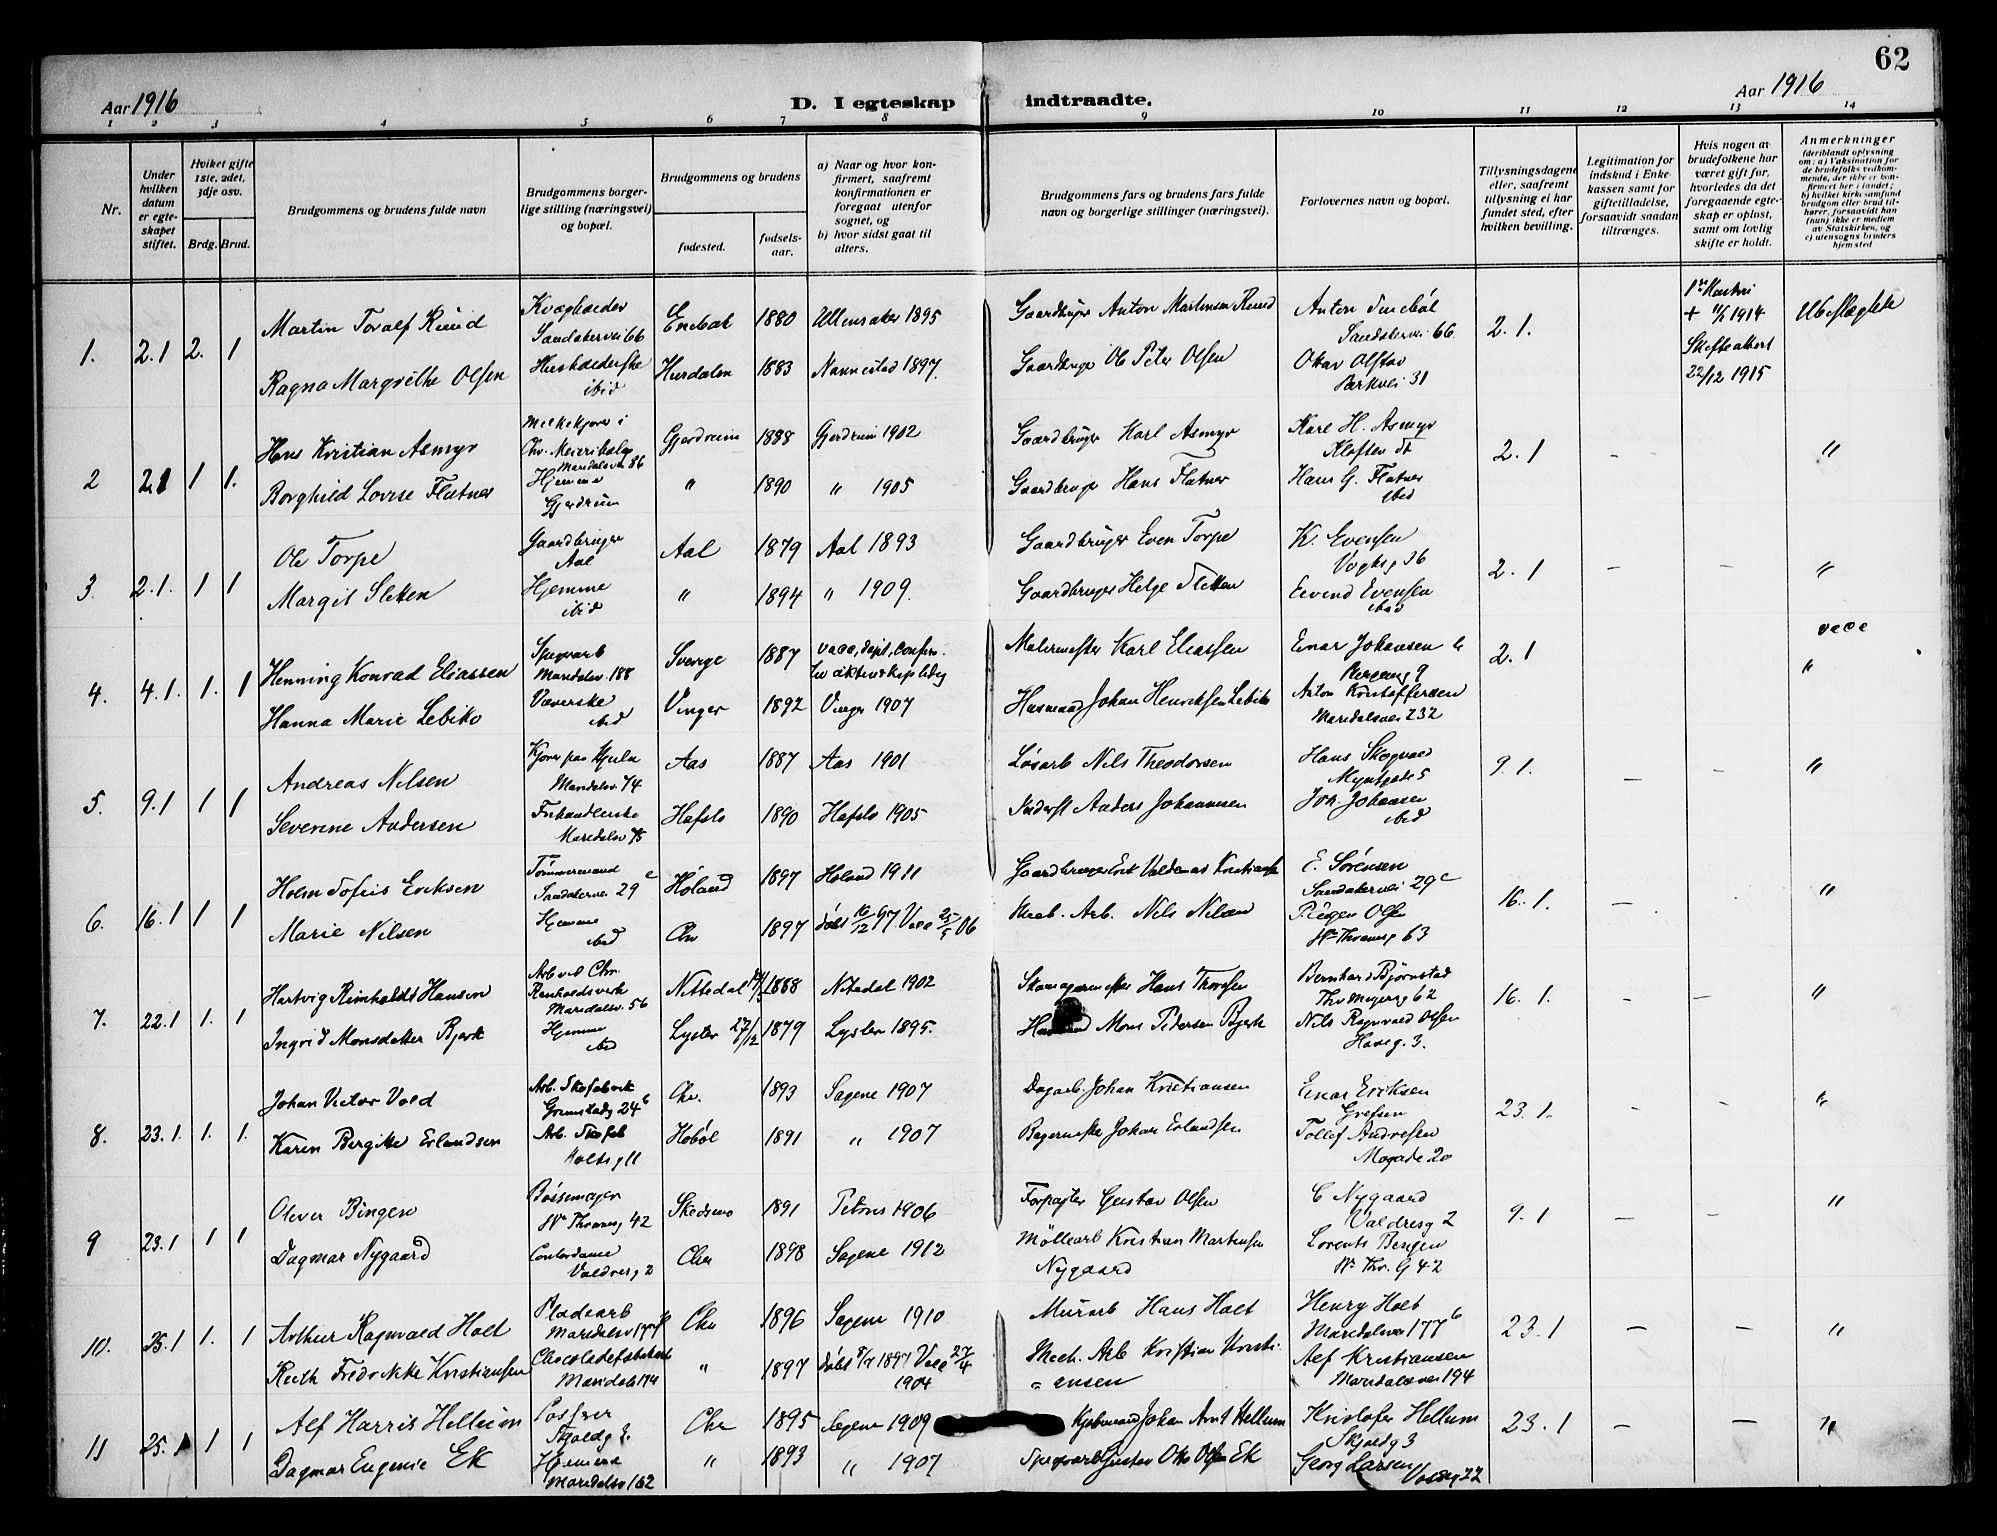 62
Aar 1916
D. I egteskap indtraadte.
Aar 1916
1 2 3 4 5 6 7 8 9 10 11 12 13 14
Nr.
Under hvilken datum er egteskapet stiftet.
Hviket gifte 1ste, 2det, 3dje osv.
Brdg. Brud.
Brudgommens og brudens fulde navn
Brudgommens borgerlige stilling (næringsvei) og bopæl.
Brudgommens og brudens
fødested.
fødselsaar.
a) Naar og hvor konfirmert, saafremt konfirmationen er foregaat utenfor sognet, og
b) hvor sidst gaat til alters.
Brudgommens fars og brudens fars fulde navn og borgerlige stillinger (næringsvei).
Forlovernes navn og bopæl.
Tillysningsdagene eller, saafremt tillysning ei har fundet sted, efter hvilken bevilling.
Legitimation for indskud i Enkekassen samt for giftetilladelse, forsaavidt saadan tiltrænges.
Hvis nogen av brudefolkene har været gift før, hvorledes da det foregaaende egteskap er opløst, samt om lovlig skifte er holdt.
Anmerkninger
(deriblandt oplysning om: a) Vaksination for de brudefolks vedkommende, der ikke er konfirmert her i landet; b) hvilket kirkesamfund brudgom eller brud tilhører, forsaavidt han (hun) ikke er medlem av Statskirken, og c) utensogns bruders hjemsted
1. 2.1 2. 1 Martin Toralf Ruud Sandakervei 66 Enebak 1880 Ullensaker 1895 Gaardbruger Anton Martinsen Ruud Anton Sandakervei 66 2.1. + 1914 Ubeslægtede
Ragna Margrethe Olsen ibid Hurdalen 1883 Nannestad 1897. Gaardbruger Ole Peter Olsen Olstad 31 Skifteattest 22/12 1915
2 2.1 1 1. Hans Kristian Asmyr Melkekjører i Chr. Meieribolag Maridalsv 86 Gjerdrum 1888 Gjerdrum 1902 Gaardbruger Karl Asmyr Karl H. Asmyr Kløften st 2.1 - - "
Borghild Lovise Flatner Hjemme Gjerdrum " 1890 " 1905 Gaardbruger Hans Flatner Hans G. Flatner ibid
3. 2.1. 1 1 Ole Torpe Gaardbruger Aal Aal 1879 Aal 1893 Gaardbruger Even Torpe K. Evensen Vogtsg 36 2.1 - - "
Margit Sletten Hjemme ibid " 1894 " 1909. Gaardbruger Helge Sletten Eivind Evensen ibid
4. 4.1. 1. 1 Henning Konrad Eliassen Maridalsv. 188 Sverige 1887 vacc, døpt, confirm. Malermester Karl Eliassen Einar Johansen 9 2.1 vacc "
Hanna Marie Lebiko Væverske ibid Vinger 1892 Vinger 1907 Husmand Johan Henriksen Lebiko Anton Kristoffersen Maridalsvei 232
5. 9.1 1 1 Andreas Nilsen Maridalsv. 74 Aas 1887 Aas 1901 Løsarb Nils Theodorsen Hans Skogvad Myntgade 5 9.1. - - "
Severine Andersen Maridalsv 78 Hafslo 1890 Hafslo 1905 Inderst Anders Johannesen Joh. Johansen ibid
6. 16.1 1 1 Holm Sofus Eriksen Tømmermand Sandakervei 29c Høland 1897 Høland 1911 Gaardbruger Erik Valdemar Kristiansen E. Sørensen Sandakervei 29c 16.1. - - "
Marie Nilsen Hjemme ibid Chr 1897 døbt 16/12 97 Vacc 25/5 06 Arb. Nils Nilsen Olsen 63
7. 22.1 1. 1 Hartvig Rinholdt Hansen Arb ved Chr. Renholdsverk Maridalsv. 56 Nittedal 1888 Nitedal 1902 Skomagermester Hans Thoresen Bernhard Bjørnstad Thv Meyersg 62 16.1. - - "
Ingrid Monsdatter Bjerk Hjemme ibid Lyster 27/12 1879 Lyster 1895. Husmand Mons Pedersen Bjerk Nils Ragnvald Olsen Haveg. 3.
8. 23.1. 1. 1. Johan Victor Vold Arb. Skofabrik 24b Chr. 1893 Sagene 1907 Dagarb. Johan Kristiansen Einar Eriksen Grefsen 23.1. - - "
Karen Bergitte Erlandsen Arb. Skofab Holtsg 11 Hobøl 1891 " 1907 Bagermester Johan Erlandsen Tollef Andresen Mogade 20
9 23.1 1 1 Oliver Bingen Bøssemager 42 Skedsmo 1891 Petrus 1906 Forpagter Gustav Olsen C Nygaard Valdresg 2 9.1 - - "
Dagmar Nygaard Contordame Valdresg 2 Chr 1898 Sagene 1912 Møllearb Kristian Martinsen Nygaard Lorents Bingen 42
10. 25.1 1. 1 Arthur Ragnvald Holt Pladearb Maridalsv 177b Chr 1896 Sagene 1910 Murarb Hans Holt Henry Holt Maridalsvei 177b 23.1 - - "
Ruth Fredrikke Kristiansen Chocoladefabrikarb Maridalsv 194 " 1897 døbt 8/7 1897 Vacc 27/4 1904 Mech. Arb Kristian Kristiansen Alf Kristiansen Maridalsvei 194
11 25.1 1 1 Alf Harris Hellum Skjoldg 3. Chr 1895 Sagene 1909 Kjøbmand Johan Arnt Hellum Kristofer Hellum Skjoldg 3 23.1 - - "
Dagmar Eugenie Ek Hjemme Maridalsv 162 " 1893 " 1907 Gustav Otto Olsen Ek Georg Larsen 22